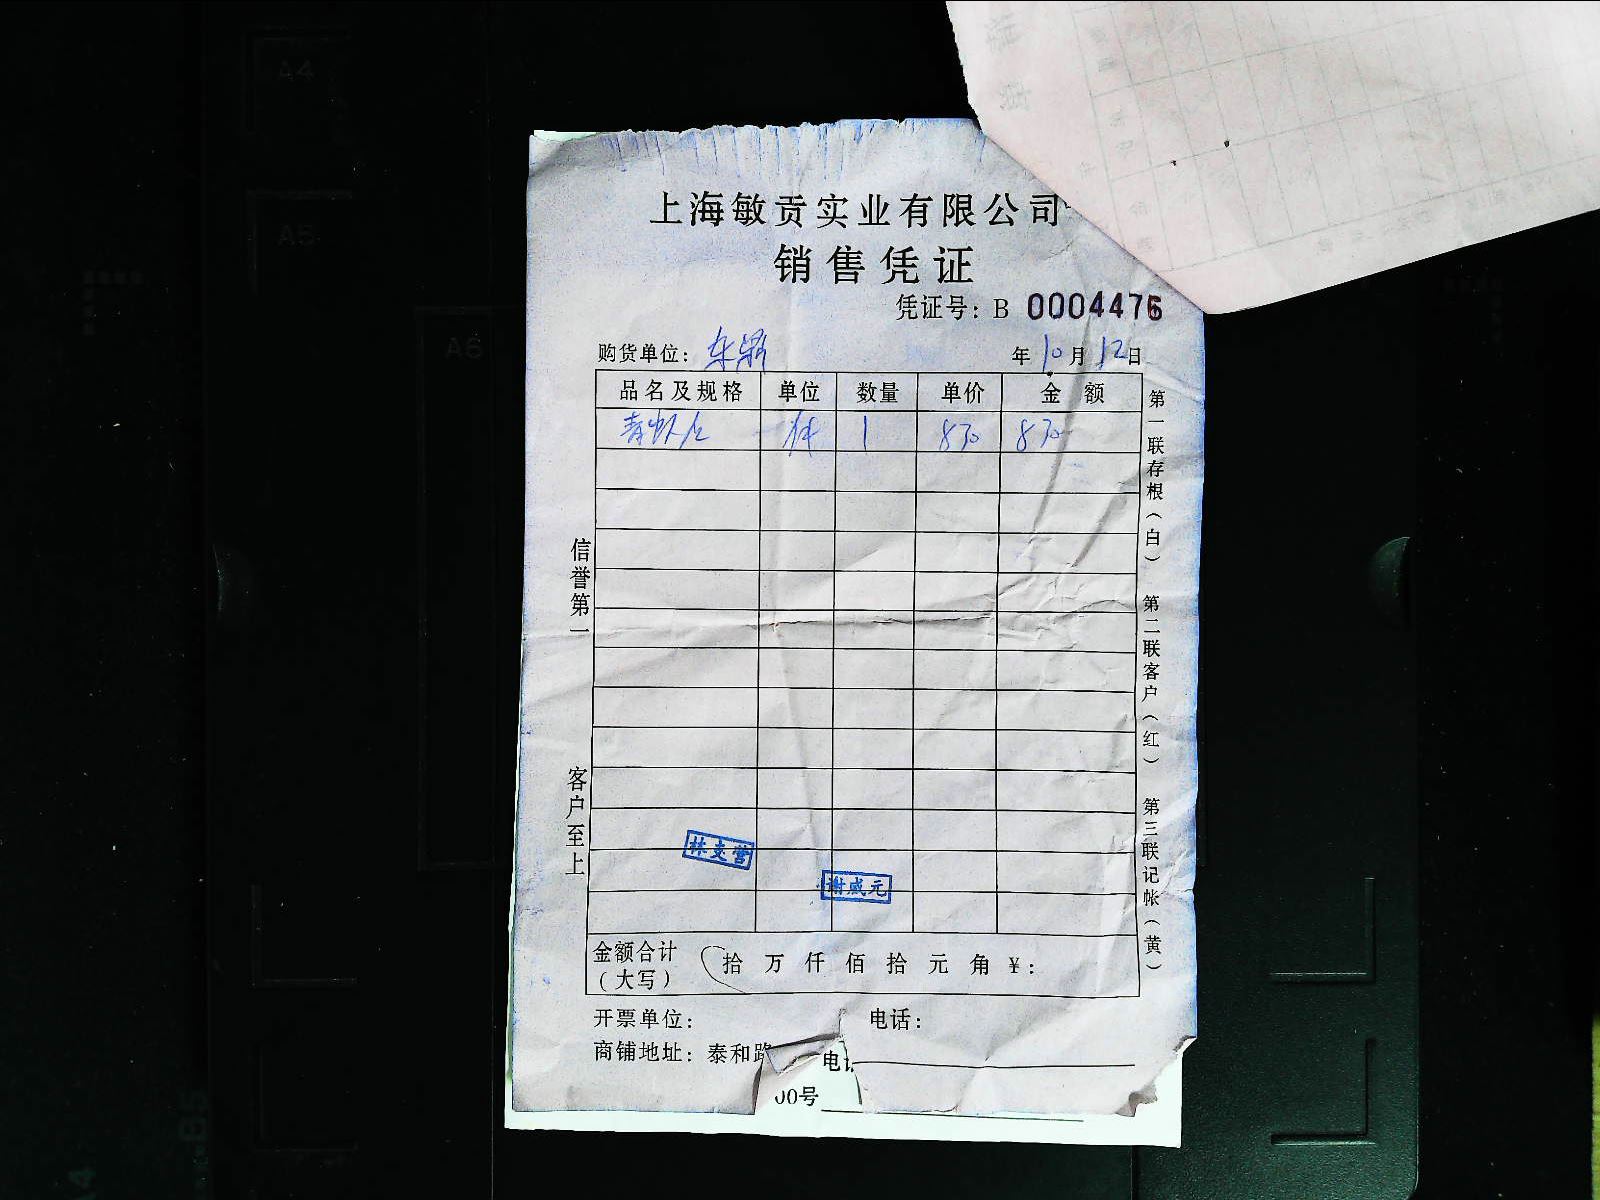 A4
A5
A6
上海敏贡实业有限公司
销售凭证
凭证号：B 0004476
购货单位：东 年10月12日
品名及规格 单位 数量 单价 金额
青虾仁 件 1 830 830
信誉第一
客户至上
第一联存根（白） 第二联客户（红） 第三联记帐（黄）
谢咸元
金额合计（大写） 拾 万 仟 佰 拾 元 角 ¥：
开票单位： 电话：
商铺地址：泰和路 电话
00号
B5